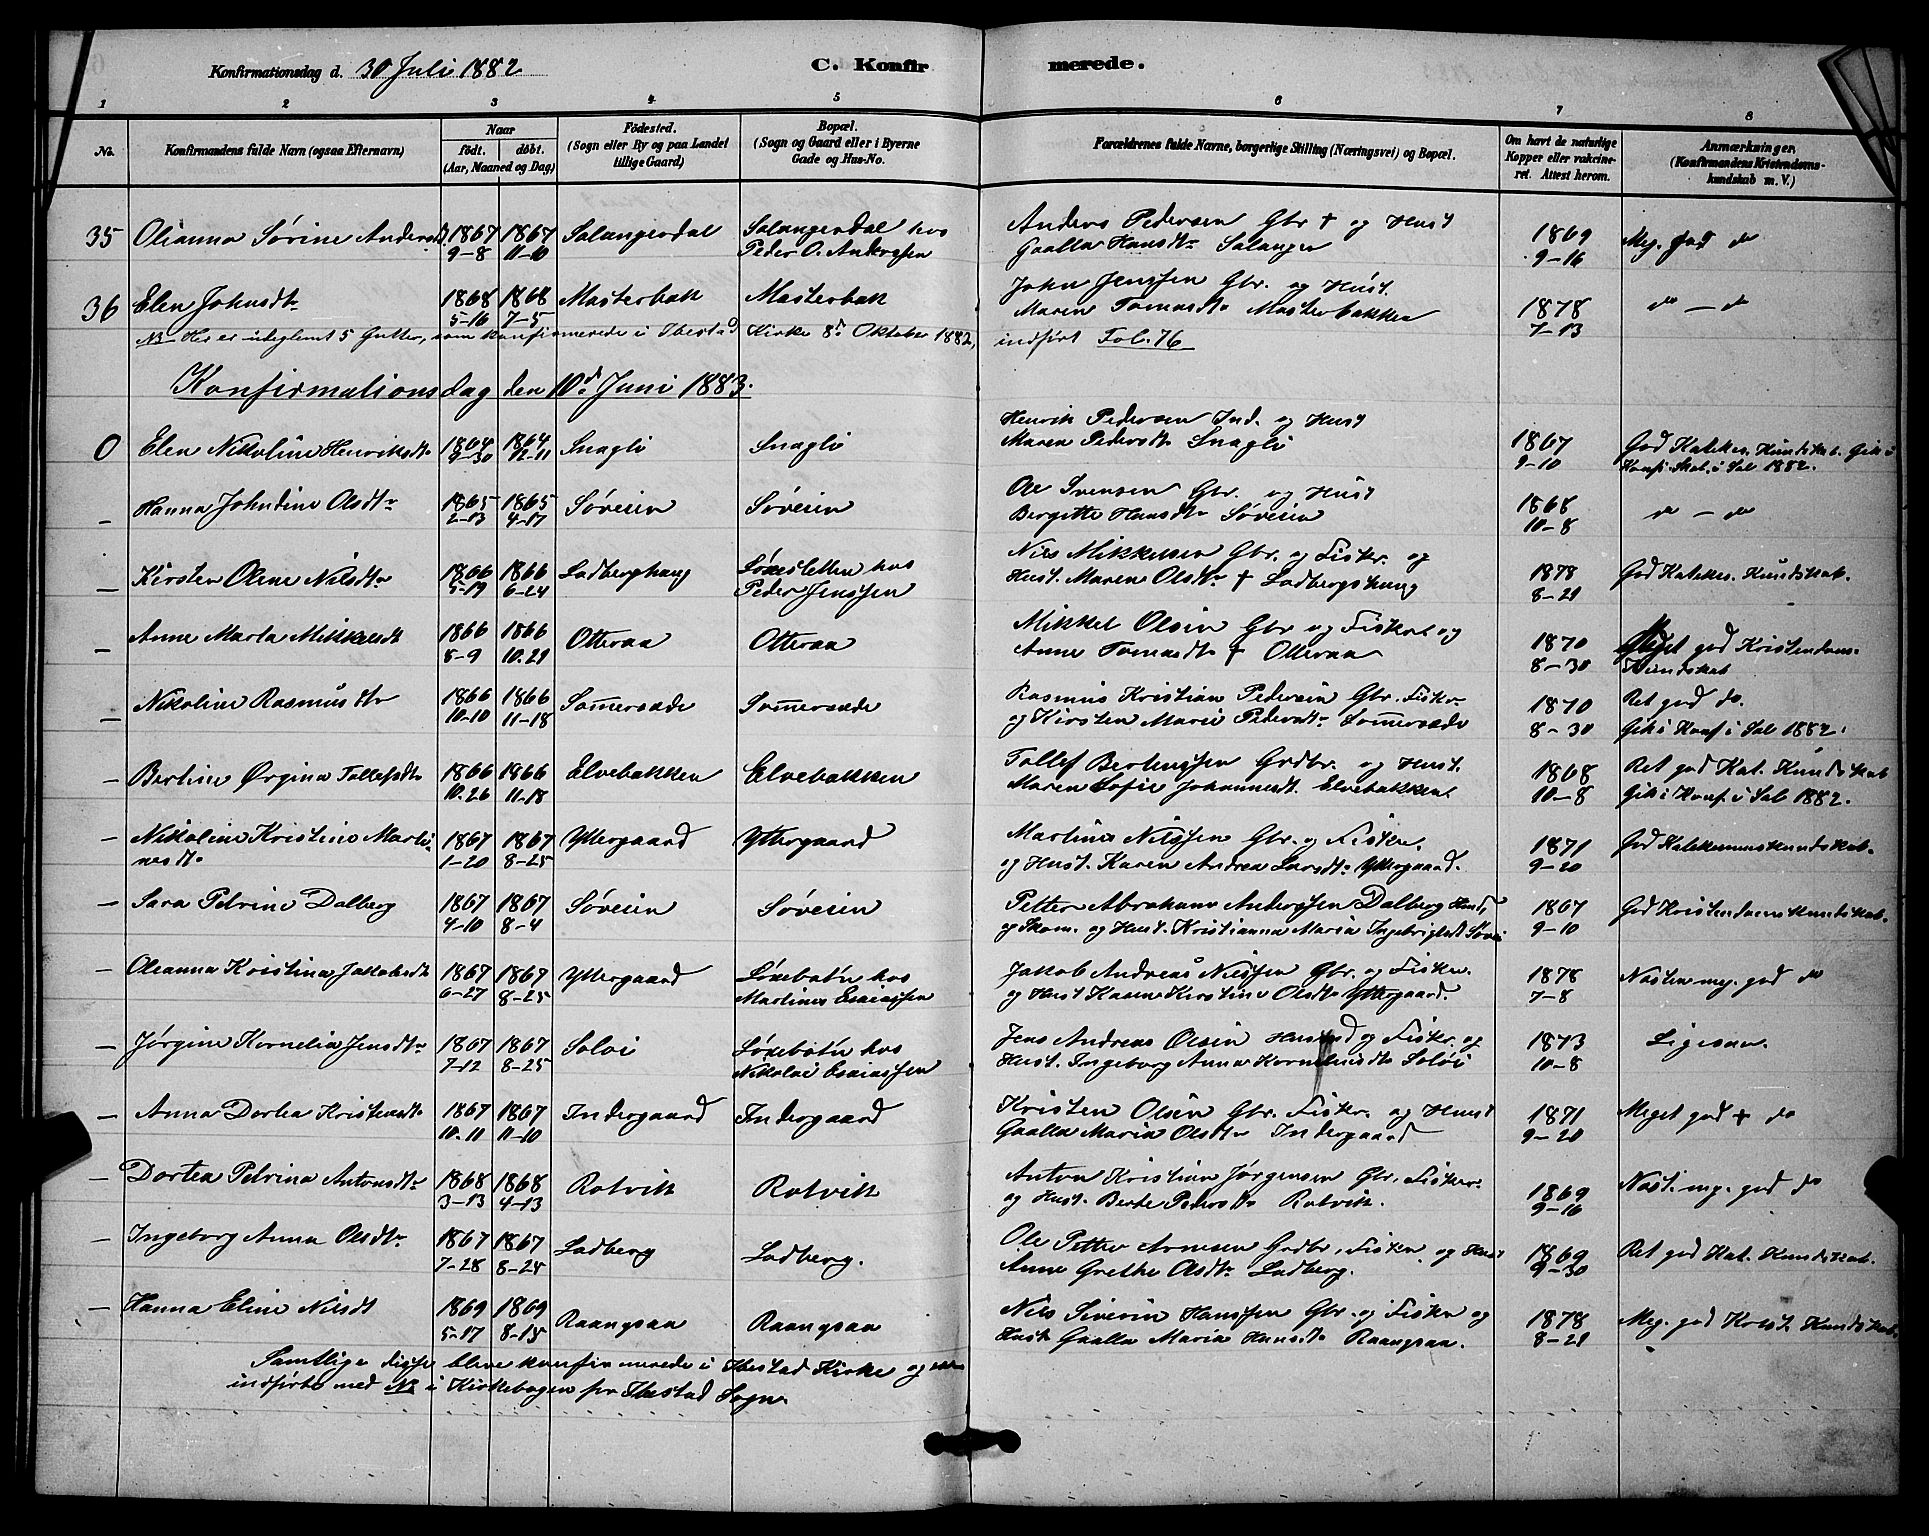 Konfirmationsdag d. 30 Juli 1882
C. Konfirmerede.
1 2 3 4 5 6 7 8
No. Konfirmandens fulde Navn (ogsaa Efternavn) Naar født. døbt. (Aar, Maaned og Dag) Fødested. (Sogn eller By og paa Landet tillige Gaard) Bopæl. (Sogn og Gaard eller i Byerne Gade og Hus-No. Forældrenes fulde Navne, borgerlige Stilling (Næringsvei) og Bopæl. Om havt de naturlige Kopper eller vakcineret. Attest herom. Anmærkninger. (Konfirmandens Kristendomskundskab m. V.)
35 Olianna Sørine Andersd 1867 1867 Salangsdal Salangsdal hos Anders Pedersen Gbr + og Hust 1869 Meg. god do
9-8 11-10 Peder O. Anderssen Gaalla Hansdtr Salangen 9-16
36 Elen Johnsdtr 1868 1868 Masterbak Masterbak John Jenssen Gbr. og Hust. 1878 do - do
5-16 7-5 Maren Tomasdtr Masterbakken 7-13
NB Her er uteglemt 5 Gutter, som konfirmerede i Ibestad Kirke 8de Oktober 1882, indført Fol. 76
Konfirmationsdag den 10de Juni 1883.
0 Elen Nikoline Henriksdtr 1864 1864 Snagli Snagli Henrik Pedersen Ind. og Hust 1867 God Katekes. Kundskab. Gik i
9-30 12-11 Maren Pedersdtr Snagli 9-10 Konf. Skole i Sal 1882.
- Hanna Johndine Olsdtr 1865 1865 Søveien Søveien Ole Svensen Gbr. og Hust 1868 do - do
2-13 4-17 Bergitte Hansdtr Søveien 10-8
- Kirsten Oline Nilsdtr 1866 1866 Ladberghaug Løxesletten hos Nils Mikkelsen Gbr. og Fisker. og 1878 God Katekes. Kundskab.
5-19 6-24 Peder Jenssen Hust. Maren Olsdtr + Ladbergshaug 8-21
- Anne Marta Mikkelsdt 1866 1866 Otteraa Otteraa Mikkel Olsen Gbr og Fisker og 1870 Meget god Kristendoms-
8-9 10-21 Anne Tomasdtr + Otteraa 8-30 Kundskab
- Nikoline Rasmusdtr 1866 1866 Sommersæde Sommersæde Rasmus Kristian Pedersen Gbr. Fisker 1870 Ret god do.
10-10 11-18 og Kirsten Marie Pedersdtr Sommersæde 8-30 Gik i Konf. i Sal 1882.
- Bertine Ørgina Tollefsdtr 1866 1866 Elvebakken Elvebakken Tollef Bertenssen Grdbr. og Hust. 1868 Ret god Kat. Kundskab
10-26 11-18 Maren Sofie Johannesdt. Elvebakken 10-8 Gik i Konf. i Sal 1882.
- Nikoline Kristine Marti- 1867 1867 Yttergaard Yttergaard Martinus Nilssen Gbr. og Fisker. 1871 God Katekismuskundskab.
nesdtr 1-20 8-25 og Hust. Karen Andrea Larsdtr Yttergaard. 9-20
- Sara Petrine Dalberg 1867 1867 Søveien Søveien Petter Abraham Anderssen Dalberg Husmd 1867 God Kristendomskundskab.
4-10 8-4 og Skom. og Hust. Kristianna Maria Ingebrigtsdt Søvei 9-10
- Oleanna Kristina Jakobsdt 1867 1867 Yttergaard Løxebotn hos Jakob Andreas Nilssen Gbr. og Fisker. 1878 Næsten meg. god do
6-27 8-25 Martinus Esaiassen og Hust Karen Kirstine Olsdtr Yttergaard. 7-8
- Jørgine Kornelia Jensdtr 1867 1867 Soløi Løxebotn hos Jens Andreas Olsen Husmd og Fisker. og 1873 Ligesaa.
7-12 8-25 Nikolai Esaiassen Hust. Ingeborg Anna Korneliusdtr Soløi 10-8
- Anna Dortea Kristensdtr 1867 1867 Indergaard Indergaard Kristen Olsen Gbr. Fisker. og Hust 1871 Meget god + do
10-11 11-10 Gaalla Maria Olsdtr Indergaard 9-20
- Dortea Petrina Antonsdtr 1868 1868 Rotvik Rotvik Anton Kristian Jørgensen Gbr. Fisker. 1869 Næst. mg. god do
3-13 4-13 og Hust. Berte Pedersdtr Rotvik. 9-16
- Ingeborg Anna Olsdtr 1867 1867 Ladberg Ladberg. Ole Petter Arnesen Grdbr. Fisker og Hust 1869 Ret god Kat. Kundskab.
7-28 8-24 Anne Grethe Olsdtr Ladberg. 9-30
- Hanna Eline Nilsdt 1869 1869 Raangsaa Raangsaa Nils Siverin Hanssen Gbr. og Fisker og 1878 Meg. god Krist. Kundskab.
5-17 8-15 Hust Gaalla Maria Hansdtr Raangsaa. 8-21
Samtlige disse bleve konfirmerede i Ibestad Kirke og ere
indførte med No i Kirkebogen for Ibestad Sogn